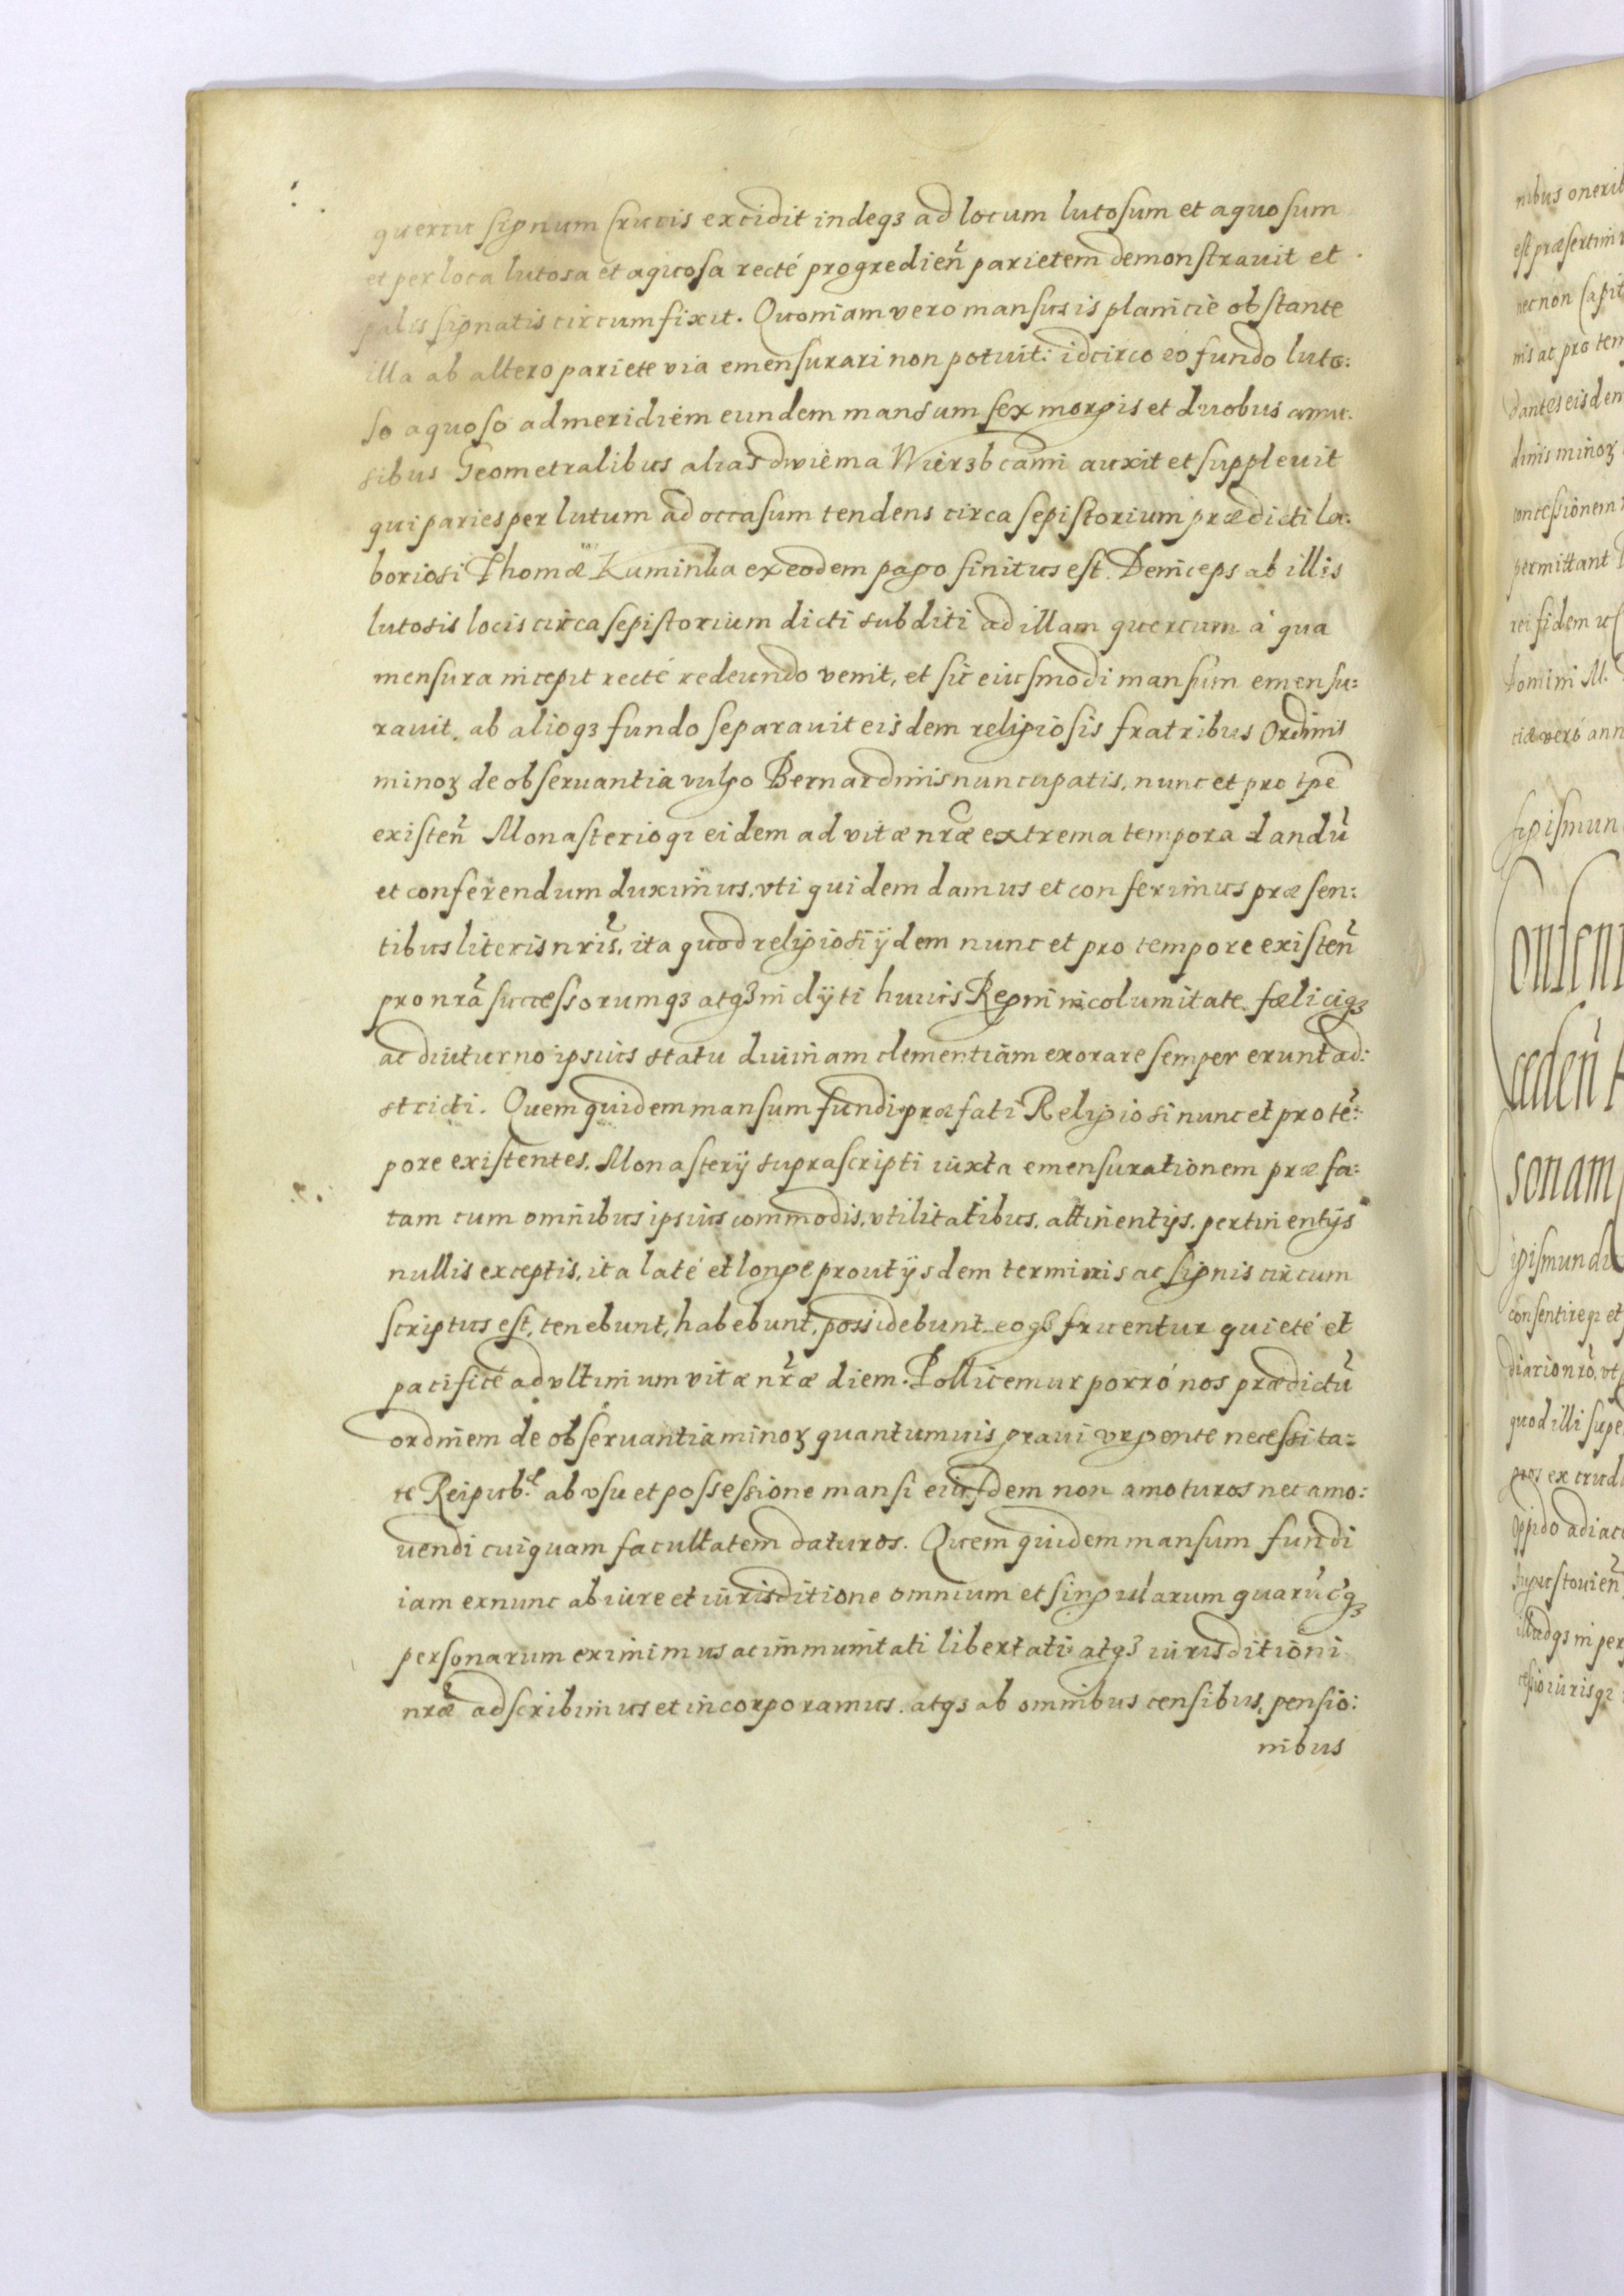 quercu signum Crucis excidit indeqȝ ad locum lutosum et aquosum
et per loca lutosa et aquosa recté progredień parietem demonstrauit et
palis signatis circumfixit. Quoniam vero mansus is planicie obstante
illa ab altero pariete via emensurari non potuit: idcirco eo fundo luto:
so aquoso ad meridiem eundem mansum sex morgis et duobus
sibus Geometralibus alias dwiema Wierzbcami auxit et suppleuit
qui paries per lutum ad occasum tendens circa sepistorium prædicti la:
boriosi Thomæ Kaminka ex eodem pago finitus est. Deinceps ab illis
lutosis locis circa sepistorium dicti subditi ad illam quercum à qua
mensura incepit recté redeundo venit, et sic eiusmodi mansum emensu:
rauit, ab alioqȝ fundo separauit eisdem religiosis fratribus Ordinis
minoȝ de obseruantia vulgo Bernardinis nuncupatis, nunc et pro tpe
existeń Monasterioqȝ eidem ad vitæ nræ extrema tempora dandū
et conferendum duximus, vti quidem damus et conferimus præsen:
tibus literis nris, ita quod religiosi ijdem nunc et pro tempore existeń
pro nra successorumqȝ atqȝ inclyti huius Regni incolumitate fæliciqȝ
ac diuturno ipsius statu diuinam clementiam exorare semper erunt ad:
stricti. Quem quidem mansum fundi præfati Religiosi nunc et pro tē:
pore existentes, Monasterij suprascripti iuxta emensurationem præfa:
tam cum omnibus ipsius commodis, vtilitatibus, attinentijs, pertinentijs
nullis exceptis, ita laté et longe prout ijsdem terminis ac signis circum
scriptus est, tenebunt, habebunt, possidebunt eoqȝ fruentur quieté et
pacifice ad vltimum vitæ nræ diem. Pollicemur porró nos prædictū
ordinem de obseruantia minoȝ quantumuis graui vrgente necessita:
te Reipub: ab vsu et possessione mansi eiusdem non amoturos nec amo:
uendi cuiquam facultatem daturos. Quem quidem mansum fundi
iam exnunc ab iure et iurisditione omnium et singularum quarūcqȝ
personarum eximimus ac immunitati libertati atqȝ iurisditioni
nræ adscribimus et incorporamus, atqȝ ab omnibus censibus, pensio:
nibus
nibus
est præsertim
necnon Capit
nis ac pro tem
dantes eisdem
dinis minoȝ
concessionem
permittant
rei fidem
Domini M.
ciæ veró ann
Sigismun
onsen
ceden
sonam
igismundu
consentireqȝ et
diarionro, vt
quod illi supe
ex crud
Oppido adiac
illudqȝ in per